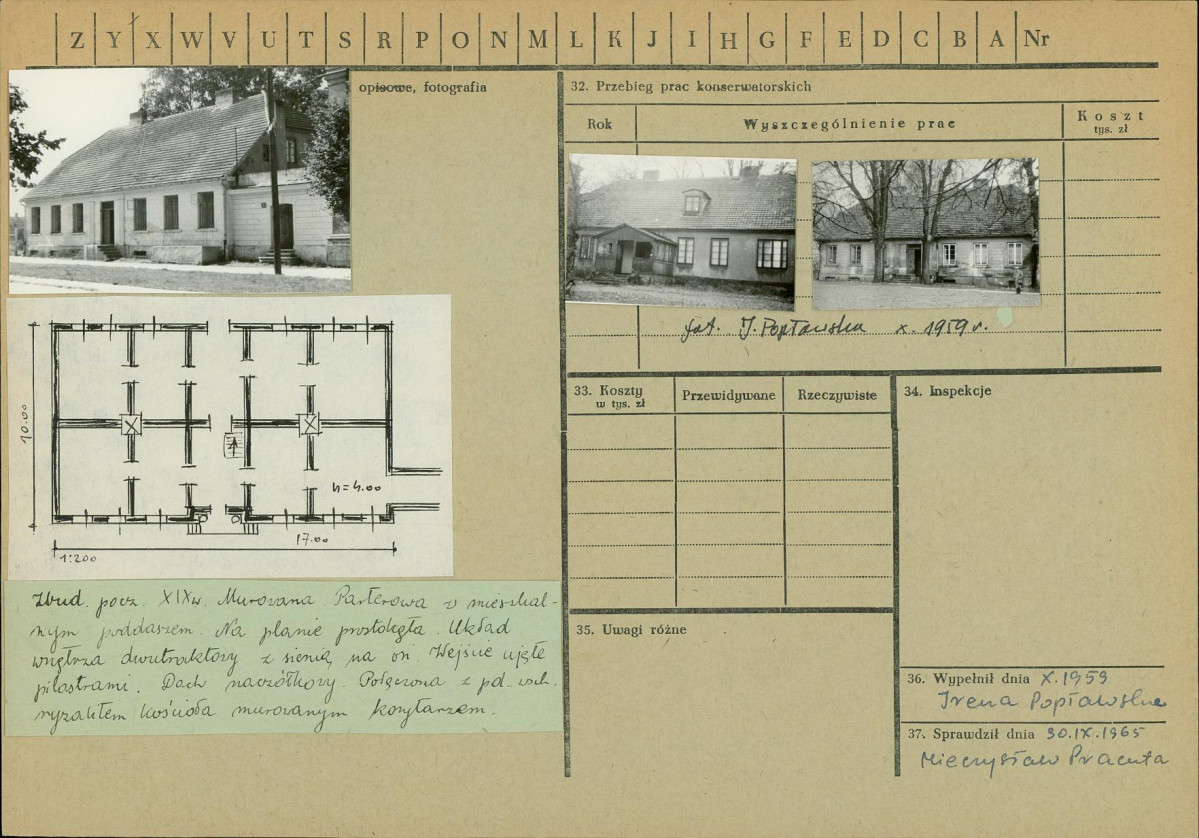 Z Y X W V U T S R P O N M L K J I H G F E D C B A Nr
opisowe, fotografia
32. Przebieg prac konserwatorskich
Rok
Wyszczególnienie prac
Koszt
tys. zł
fot. I. Popławska X. 1959 r.
10.00
h=4.00
17.00
1:200
33. Koszty
w tys. zł
Przewidywane
Rzeczywiste
34. Inspekcje
Zbud. pocz. XIXw. Murowana. Parterowa z mieszkal-
nym poddaszem. Na planie prostokąta. Układ
wnętrza dwutraktowy z sienią na osi. Wejście ujęte
pilastrami. Dach naczółkowy. Połączona z pd.-wsch.
ryzalitem kościoła murowanym korytarzem.
35. Uwagi różne
36. Wypełnił dnia X.1959
Irena Popławska
37. Sprawdził dnia 30.IX.1965
Mieczysław Pracuta